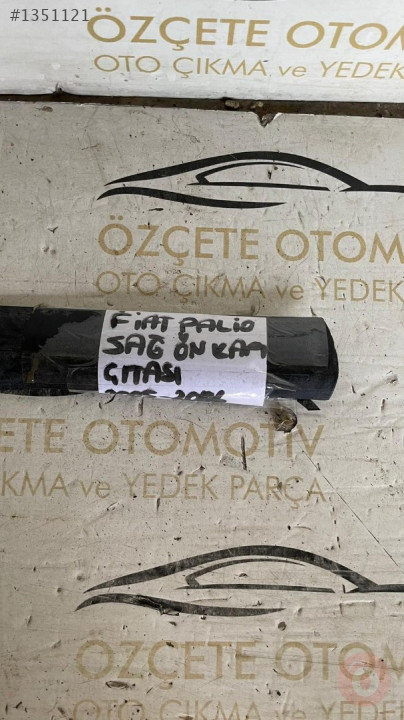 #1351121
ÖZÇETE OTOM
OTO ÇIKMA ve YEDEK PARÇ
ÖZÇETE OTOM
OTO ÇIKMA ve YEDEK
FiAT PALiO
SAĞ ÖN KAPI
ÇITASI
ETE OTOMOTİV
KMA ve YEDEK PARÇA
ÖZÇETE OTOM
OTO ÇIKMA ve YEDEK